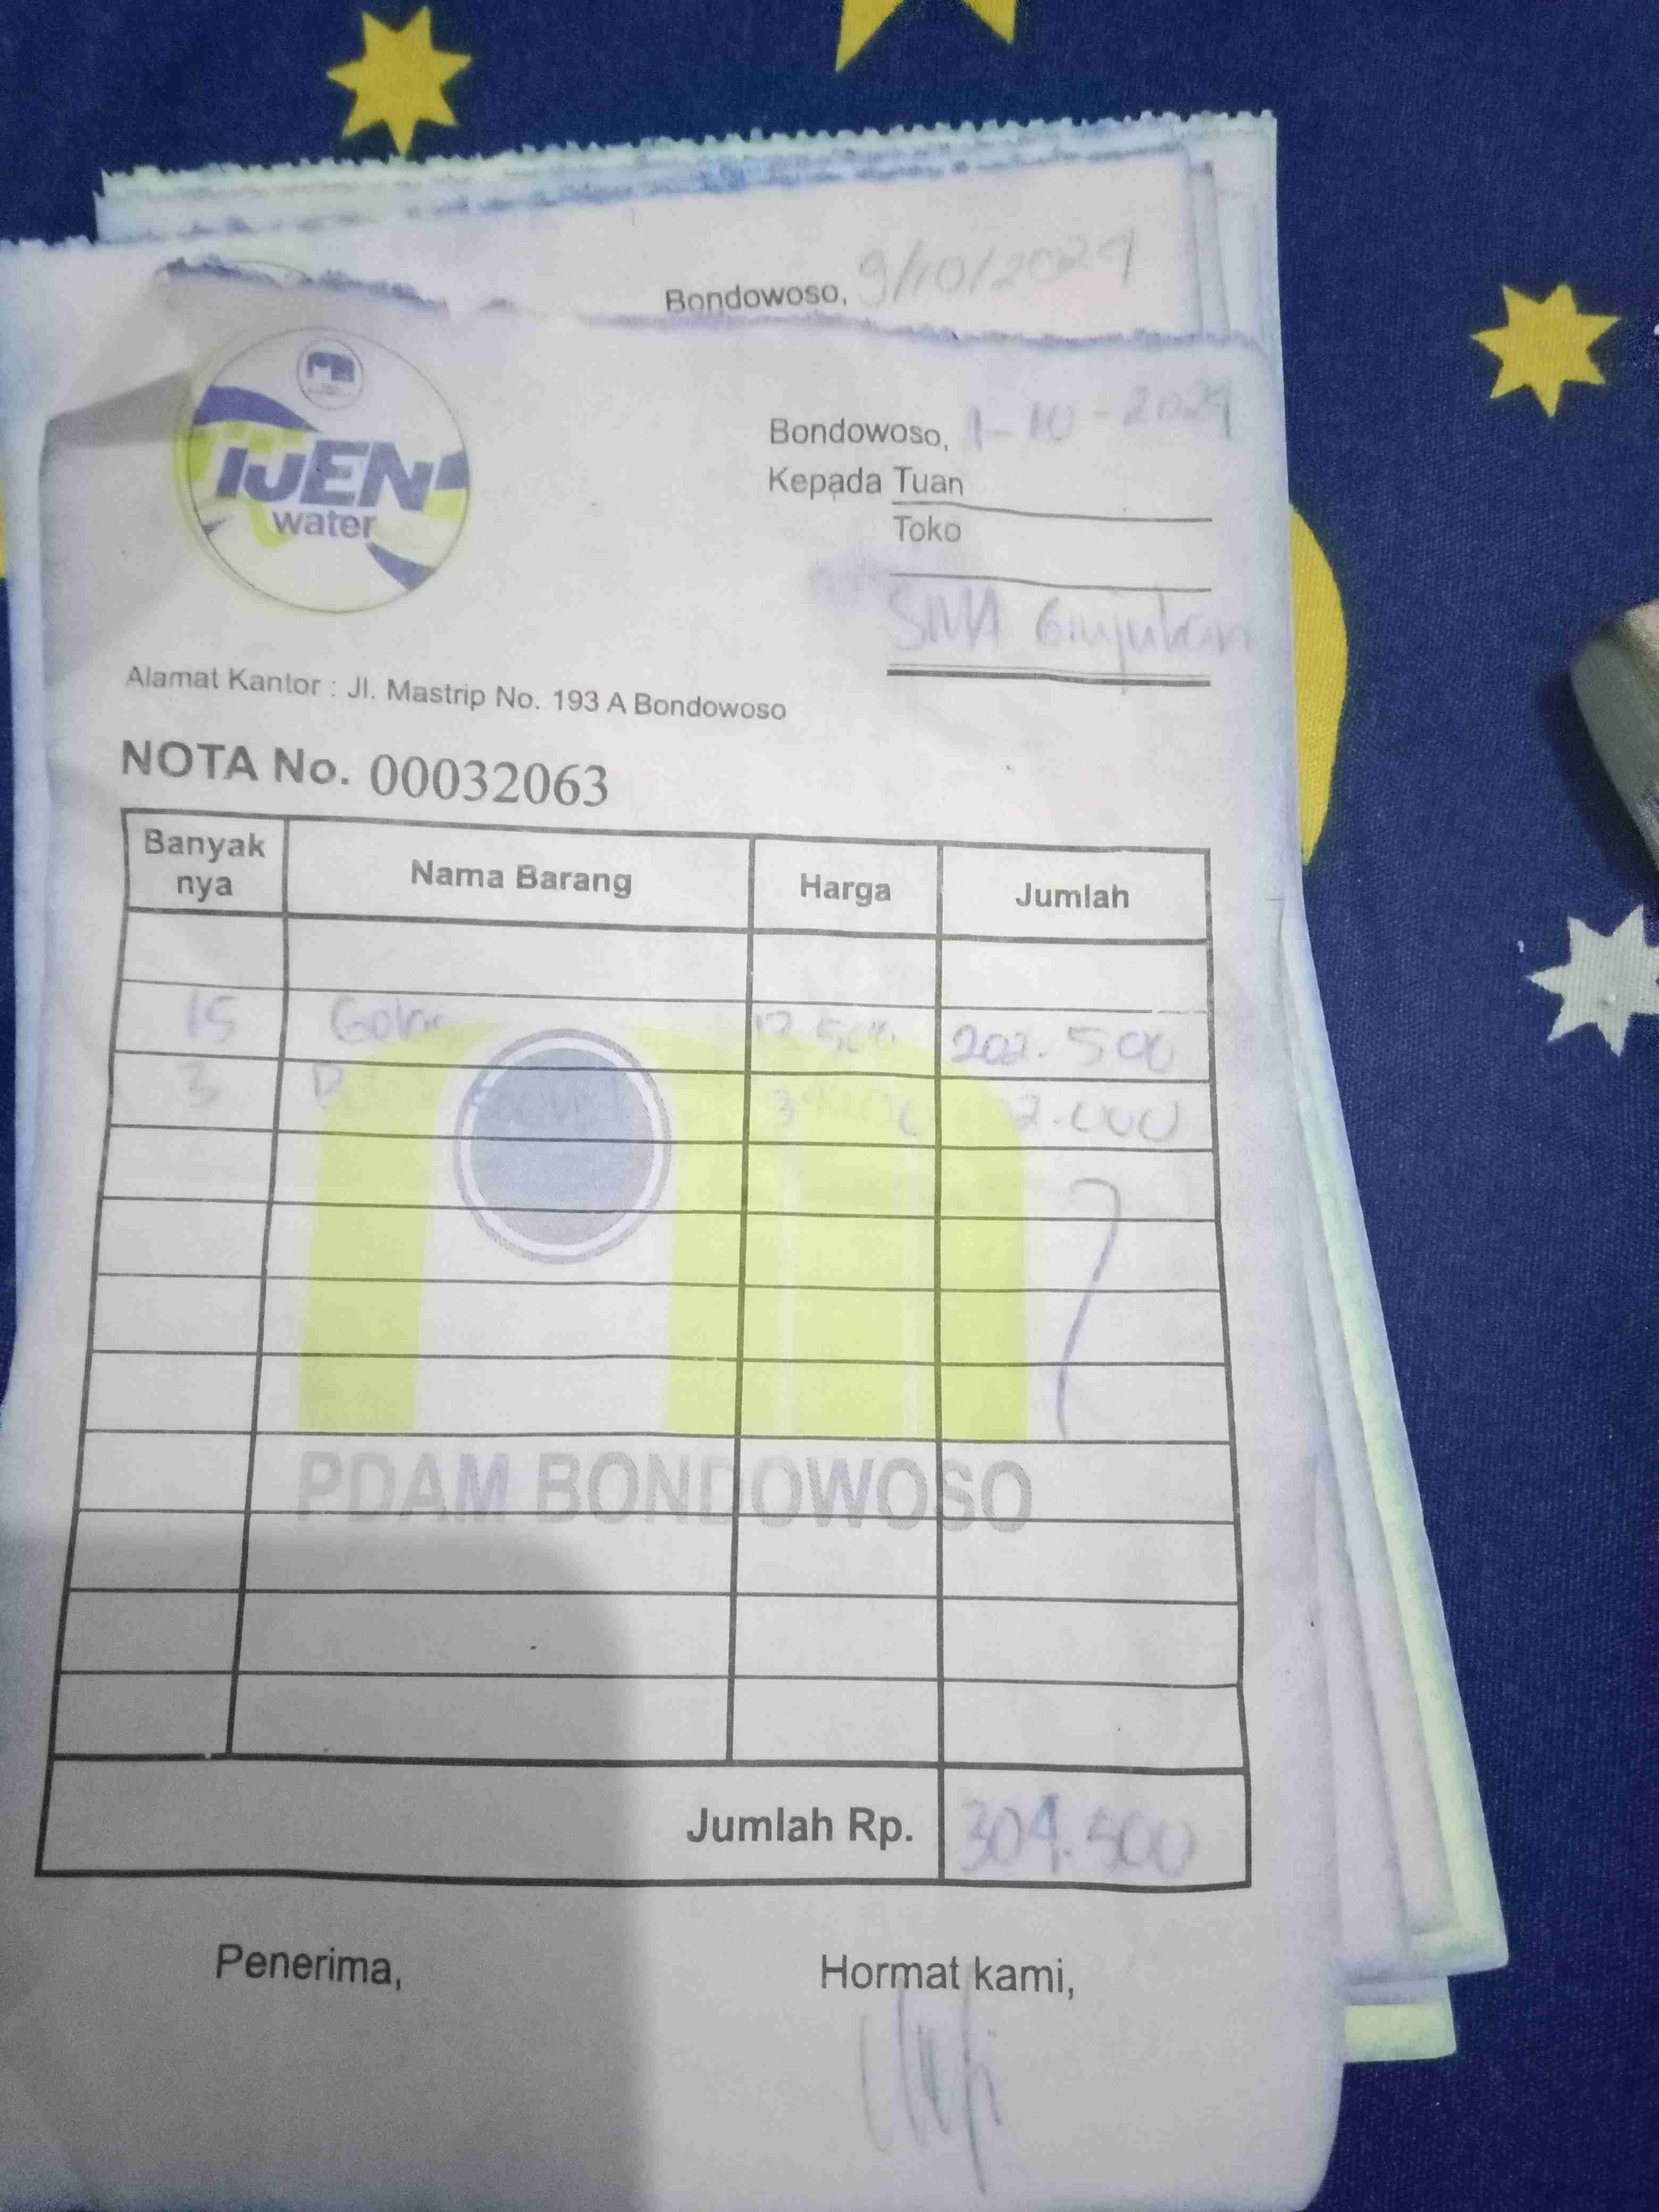 Bondowoso, 9/10/2024
IJEN
water
Bondowoso, 1-10-2024
Kepada Tuan
Toko
SMA Grujukan
Alamat Kantor : Jl. Mastrip No. 193 A Bondowoso
NOTA No. 00032063
Banyak nya Nama Barang Harga Jumlah
15 202.500
3
PDAM BONDOWOSO
Jumlah Rp. 304.500
Penerima, Hormat kami,